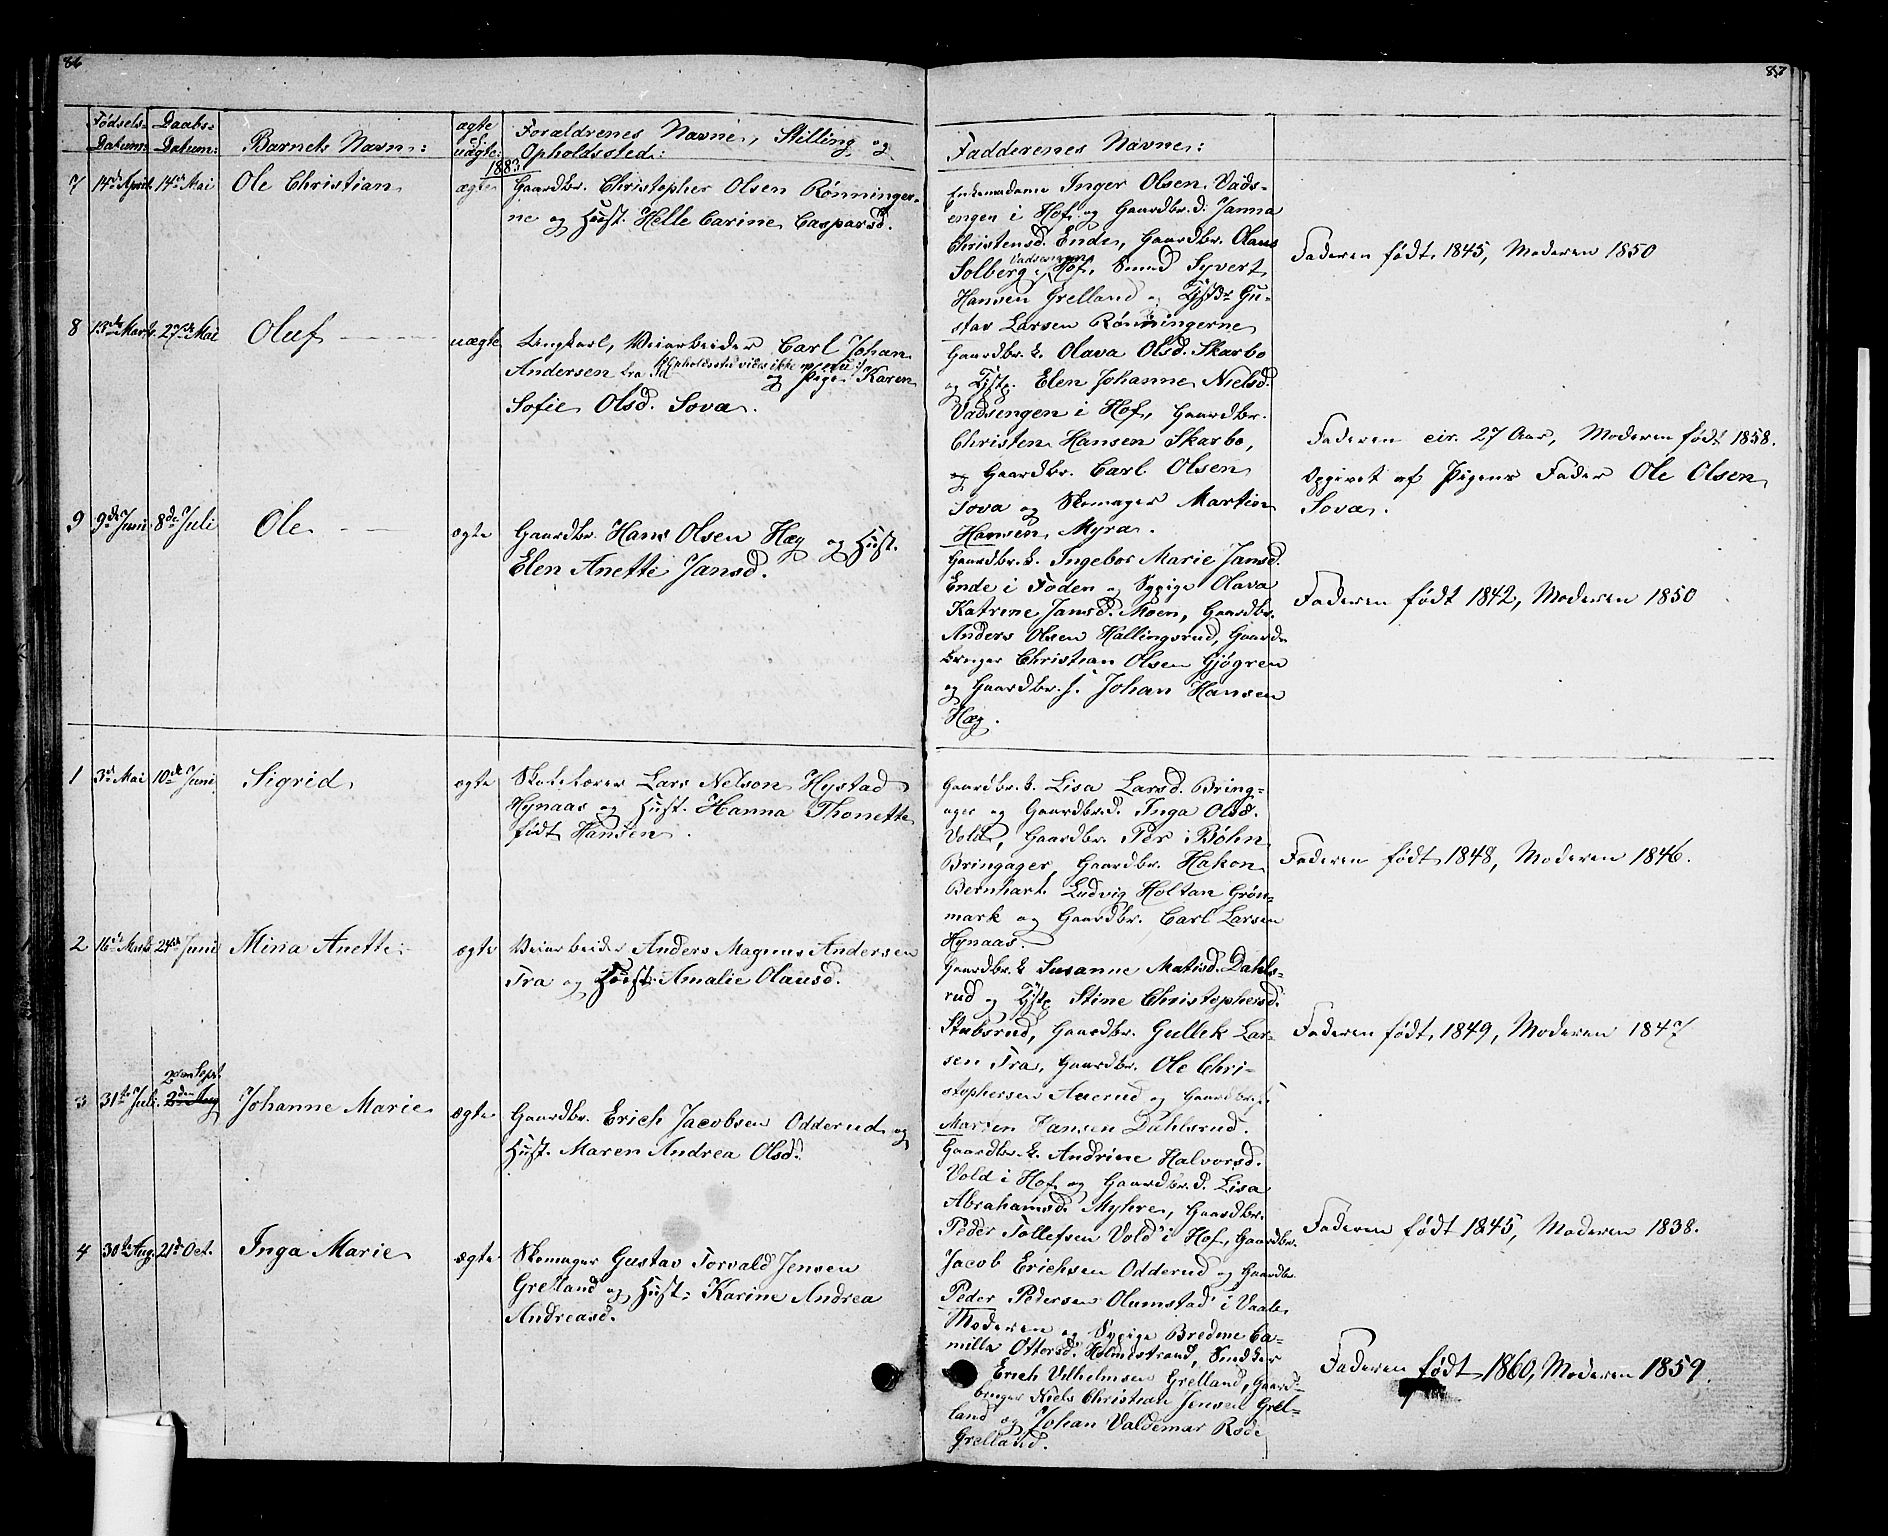 86
87
Fødsels- Datum: Daabs- Datum: Barnets Navn: ægte el. uægte: Forældrenes Navne, Stilling og Opholdssted:
Fadderenes Navne:
1883
7 14de April 14de Mai Ole Christian ægte Gaardbr. Christopher Olsen Rønninger-
ne og Hust. Helle Carine Caspersd.
Enkemadame Inger Olsen Vads-
engen i Hof og Gaardbr. d. Janna
Christensd. Ende, Gaardbr. Olaus
Vadsengen
Solberg i Hof, Smed Syvert
Hansen Grelland og Gu-
stav Larsen Rønningerne
Faderen født 1845, Moderen 1850
8 13de Marts 27de Mai Oluf uægte Ungkarl, Veiarbeider Carl Johan
Andersen fra Opholdssted vides ikke
og Pige Karen
Sofie Olsd. Sova.
Gaardbr. k. Olava Olsd. Skarbo
og Tjstp. Elen Johanne Nielsd.
Vadsengen i Hof, Gaardbr.
Christen Hansen Skarbo,
og Gaardbr. Carl Olsen
Sova og Skomager Martin
Hansen Myra.
Faderen cir. 27 Aar, Moderen født 1858.
Opgivet af Pigens Fader Ole Olsen
Sova.
9 9de Juni 8de Juli Ole ægte Gaardbr. Hans Olsen Hæg og Hust.
Elen Anette Jansd.
Gaardbr. k. Ingebor Marie Jansd.
Ende i Foden og Sypige Olava
Katrine Jansd. Moen, Gaardbr.
Anders Olsen Hallingsrud, Gaard-
bruger Christian Olsen Gjøgren
og Gaardbr. s. Johan Hansen
Hæg.
Faderen født 1842, Moderen 1850
1 3de Mai 10de Juni Sigrid ægte Skolelærer Lars Nelson Hystad
Hynaas og Hust. Hanna Thonette
født Hansen.
Gaardbr. k. Lisa Larsd. Bring-
ager og Gaardbr. d. Inga Olsd.
Vold, Gaardbr. Per Bøhn
Bringager, Gaardbr. Hakon
Bernhart Ludvig Holtan Grøn-
mark og Gaardbr. Carl Larsen
Hynaas.
Faderen født 1848, Moderen 1846.
2 16de Marts 24de Juni Mina Anette ægte Veiarbeider Anders Magnus Andersen
Fra og Hust. Amalie Olausd.
Gaardbr. k. Susanne Matisd. Dahls-
rud og Tjstp. Stine Christophersd.
Stubsrud, Gaardbr. Gullik Lar-
sen Fra, Gaardbr. Ole Chri-
stophersen Auerud og Gaardbr. s.
Martin Hansen Dahlsrud.
Faderen født 1849, Moderen 1847
2den Sept.
3 31te Juli 2den Aug Johanne Marie ægte Gaardbr. Erich Jacobsen Odderud og
Hust. Maren Andrea Olsd.
Gaardbr. k. Andrine Halvorsd.
Vold i Hof og Gaardbr. d. Lisa
Abrahamsd. Myhre, Gaardbr.
Peder Tollefsen Vold i Hof, Gaardbr.
Jacob Erichsen Odderud og Gaardbr.
Peder Pedersen Olumstad i Vaale.
Faderen født 1845, Moderen 1838.
4 30te Aug. 21de Oct. Inga Marie ægte Skomager Gustav Torvald Jensen
Grelland og Hust. Karine Andrea
Andreasd.
Moderen og Sypige Bredine Ca-
milla Ottersd. Holmestrand, Snedker
Erich Vilhelmsen Grelland, Gaard-
bruger Niels Christian Jensen Grel-
land og Johan Valdemar Rode
Grelland.
Faderen født 1860, Moderen 1859.